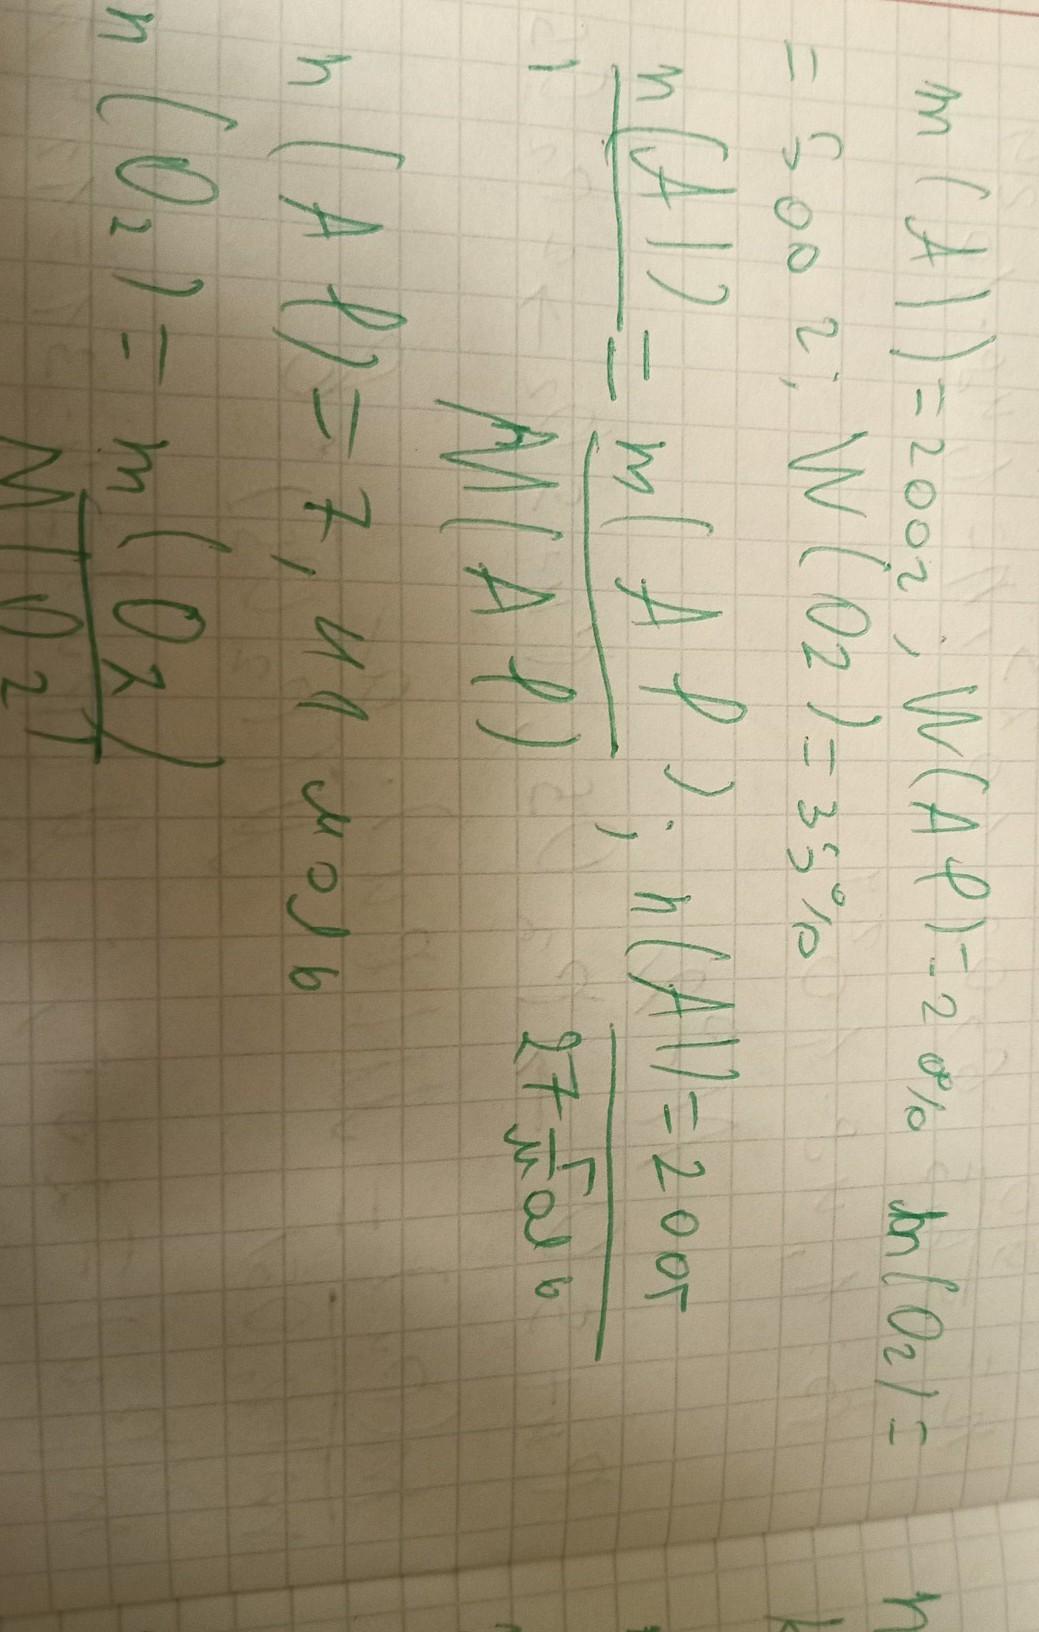 m(Al)=200г, W(Al)=20% m(O2)=
=500г; W(O2)=35%
n(Al)=m(Al); n(Al)=200г
1 M(Al) 27 г/моль
n(Al)=7,41 моль
n(O2)=m(O2)
M(O2)